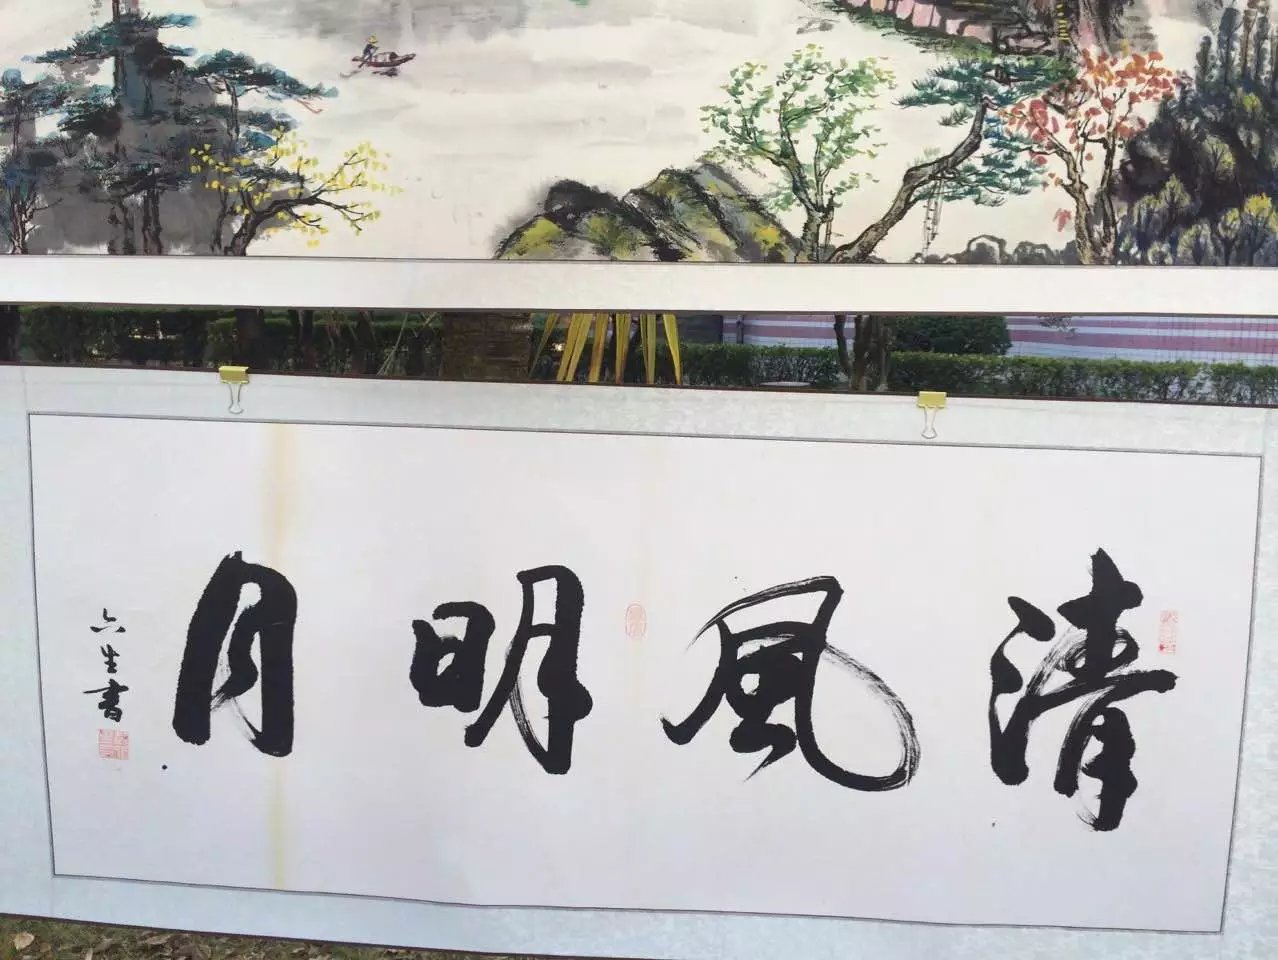 清風明月
六生書